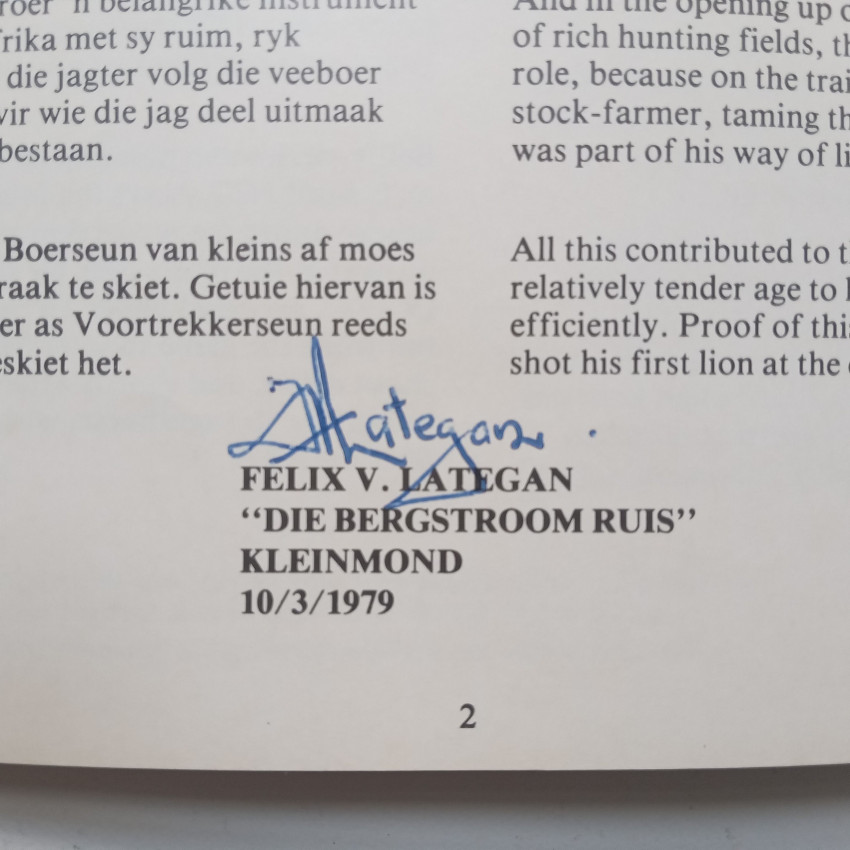 'n belangrike instrument
met sy ruim, ryk
die jagter volg die veeboer
wie die jag deel uitmaak
bestaan.
Boerseun van kleins af moes
raak te skiet. Getuie hiervan is
as Voortrekkerseun reeds
het.
And in the opening up
of rich hunting fields,
role, because on the
stock-farmer, taming
was part of his way of
All this contributed to
relatively tender age to
efficiently. Proof of this
shot his first lion at the
Lategan
FELIX V. LATEGAN
“DIE BERGSTROOM RUIS”
KLEINMOND
10/3/1979
2